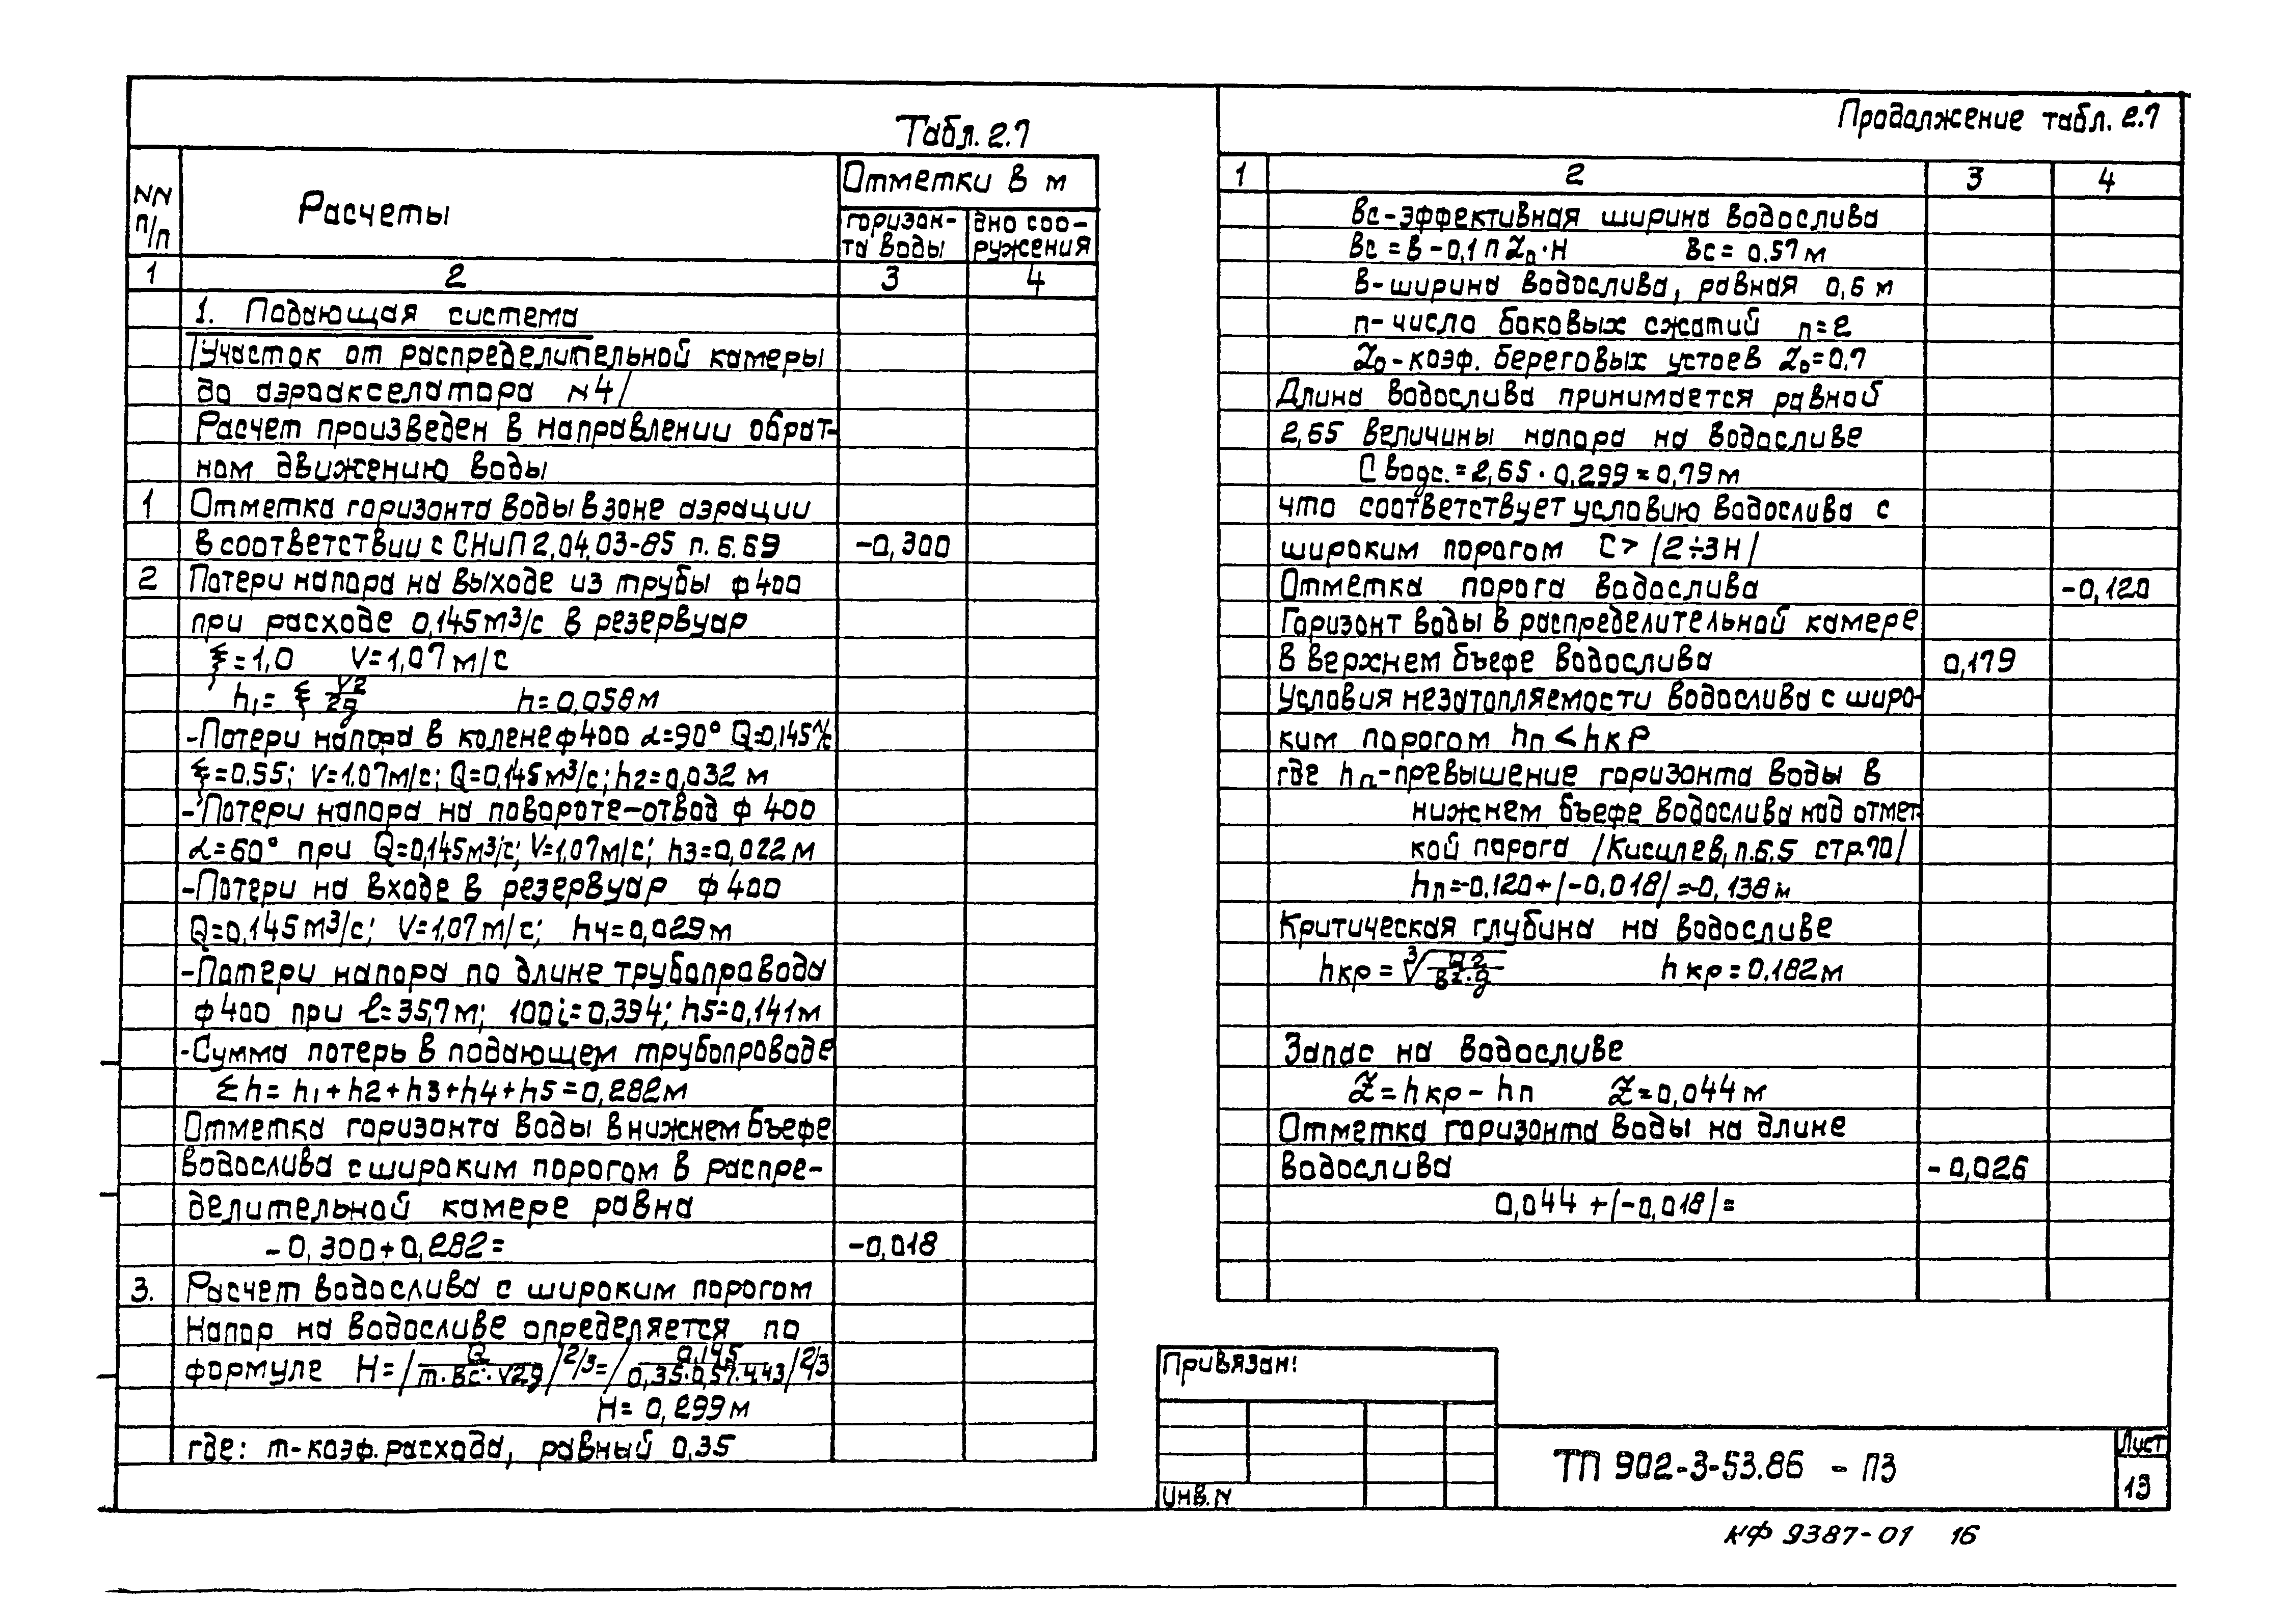 Табл. 2.7
NN п/п
Расчеты
Отметки в м
горизон-
та воды
дно соо-
ружения
1 2 3 4
1. Подающая система
/Участок от распределительной камеры
до аэроакселатора N4/
Расчет произведен в направлении обрат-
ном движению воды
1 Отметка горизонта воды в зоне аэрации
в соответствии с СНиП 2.04.03-85 п. 6.69 -0,300
2 Потери напора на выходе из трубы ф 400
при расходе 0,145 м³/с в резервуар
ξ=1,0 V=1,07 м/с
h₁= ξ V2/2g h=0,058 м
-Потери напора в колене ф 400 α=90° Q=0,145%
ξ=0.55; V=1.07м/с; Q=0,145 м³/с; h2=0,032 м
-Потери напора на повороте-отвод ф 400
α=60° при Q=0,145м3/с; V=1.07м/с; h3=0,022 м
-Потери на входе в резервуар ф 400
Q=0,145 м3/с; V=1,07 м/с; h4=0,029 м
-Потери напора по длине трубопровода
ф 400 при ℓ=35,7 м; 100i=0,394; h5=0,141 м
-Сумма потерь в подающем трубопроводе
Σh = h₁+h2+h3+h4+h5=0,282м
Отметка горизонта воды в нижнем бъефе
водослива с широким порогом в распре-
делительной камере равна
-0,300+0,282= -0,018
3. Расчет водослива с широким порогом
Напор на водосливе определяется по
формуле H=/Q/m·Вс·√2g/2/3=/0,145/0,35·0,57·4.43/2/3
H= 0,299 м
где: m-коэф. расхода, равный 0,35
Продолжение табл. 2.7
1 2 3 4
Вс-эффективная ширина водослива
Вс=В-0,1 п Zо·H Вс= 0.57 м
В-ширина водослива, равная 0,6 м
п-число боковых сжатий п=2
Zо-коэф. береговых устоев Zо=0,7
Длина водослива принимается равной
2,65 величины напора на водосливе
С водс.=2,65·0,299=0,79 м
что соответствует условию водослива с
широким порогом С> /2÷3H/
Отметка порога водослива -0,120
Горизонт воды в распределительной камере
в верхнем бъефе водослива 0,179
Условия незатопляемости водослива с широ-
ким порогом hп<hкр
где hп-превышение горизонта воды в
нижнем бъефе водослива над отмет-
кой порога /Кисилев, п.6.5 стр.70/
hп=-0,120+/-0,018/=-0,138 м
Критическая глубина на водосливе
hкр=3√Q2/В2·g hкр=0.182 м
Запас на водосливе
Z=hкр-hп Z=0,044 м
Отметка горизонта воды на длине
водослива -0,026
0,044+/-0,018/=
Привязан:
Инв. N
ТП 902-3-53.86 - ПЗ
Лист
13
КФ 9387-01 16